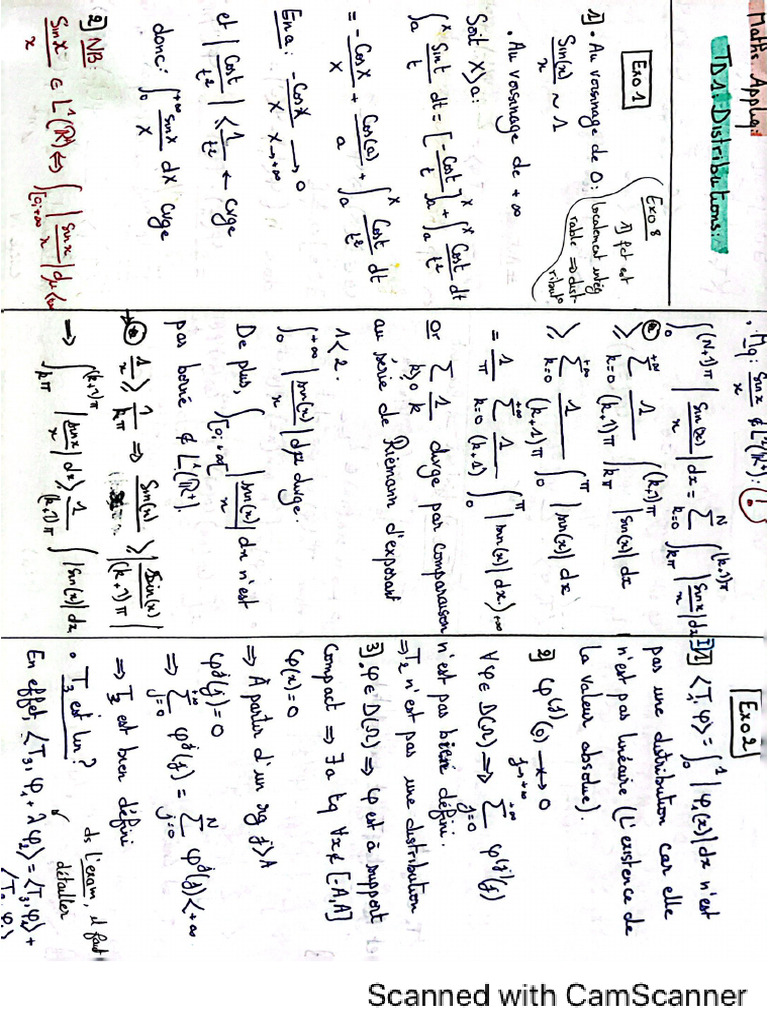 Maths Appliq:
TD1: Distributions:
Exo 1
Exo 8
1) fct est
localement intég
rable ⇒ dist
ributo
1] • Au voisinage de 0:
Sin(x)/x ~ 1
• Au voisinage de +∞
Soit X>a:
∫_a^X Sint/t dt = [-Cost/t]_a^X + ∫_a^X Cost/t² dt
= -CosX/X + Cos(a)/a + ∫_a^X Cost/t² dt
En a: -CosX/X → 0 X→+∞
et |Cost/t²| ≤ 1/t² ← cvge
donc: ∫_0^{+∞} sinx/x dx cvge
2] NB:
Sinx/x ∈ L¹(R⁺) ⇔ ∫_{[0;+∞} |sinx/x| dμ
• Mq: Sinx/x ∉ L¹(R⁺):
∫_0^{(N+1)π} |Sin(x)/x| dx = Σ_{k=0}^N ∫_{kπ}^{(k+1)π} |Sinx/x| dx
≥ Σ_{k=0}^{+∞} 1/(k+1)π ∫_{kπ}^{(k+1)π} |Sin(x)| dx
≥ Σ_{k=0}^{+∞} 1/(k+1)π ∫_0^π |sin(x)| dx
= 1/π Σ_{k=0}^{+∞} 1/(k+1) ∫_0^π |sin(x)| dx → +∞
or Σ_{k≥0} 1/k divge par comparaison
au série de Riemann d'exposant
1<2.
∫_0^{+∞} |sin(x)/x| dx divge.
De plus, ∫_{[0;+∞[} |sin(x)/x| dx n'est
pas borné ∉ L¹(R⁺).
1/x ≥ 1/kπ ⇒ Sin(x)/x ≥ |Sin(x)|/(k+1)π
⇒ ∫_{kπ}^{(k+1)π} |sinx/x| dx ≥ 1/(k+1)π ∫ |Sin(x)| dx
Exo 2
I]1] <T₁,φ> = ∫_0^1 |φ(x)| dx n'est
pas une distribution car elle
n'est pas linéaire (L'existence de
la valeur absolue).
2] φ^(j)(0) ↛ 0 j→+∞
∀φ∈D(Ω) ⇒ Σ_{j=0}^{+∞} φ^(j)(j)
n'est pas bien défini.
⇒ T₂ n'est pas une distribution
3] • φ∈D(Ω) ⇒ φ est à support
Compact ⇒ ∃a tq ∀x∉[-A,A]
φ(x)=0
⇒ À partir d'un rg j>A
φ^j(j)=0
⇒ Σ_{j=0}^{+∞} φ^j(j) = Σ_{j=0}^N φ^j(j) < +∞
⇒ T₃ est bien défini
• T₃ est lin?
ds l'exam, il faut
détailler
En effet, <T₃, φ₁+λφ₂> = <T₃,φ₁> +
Scanned with CamScanner